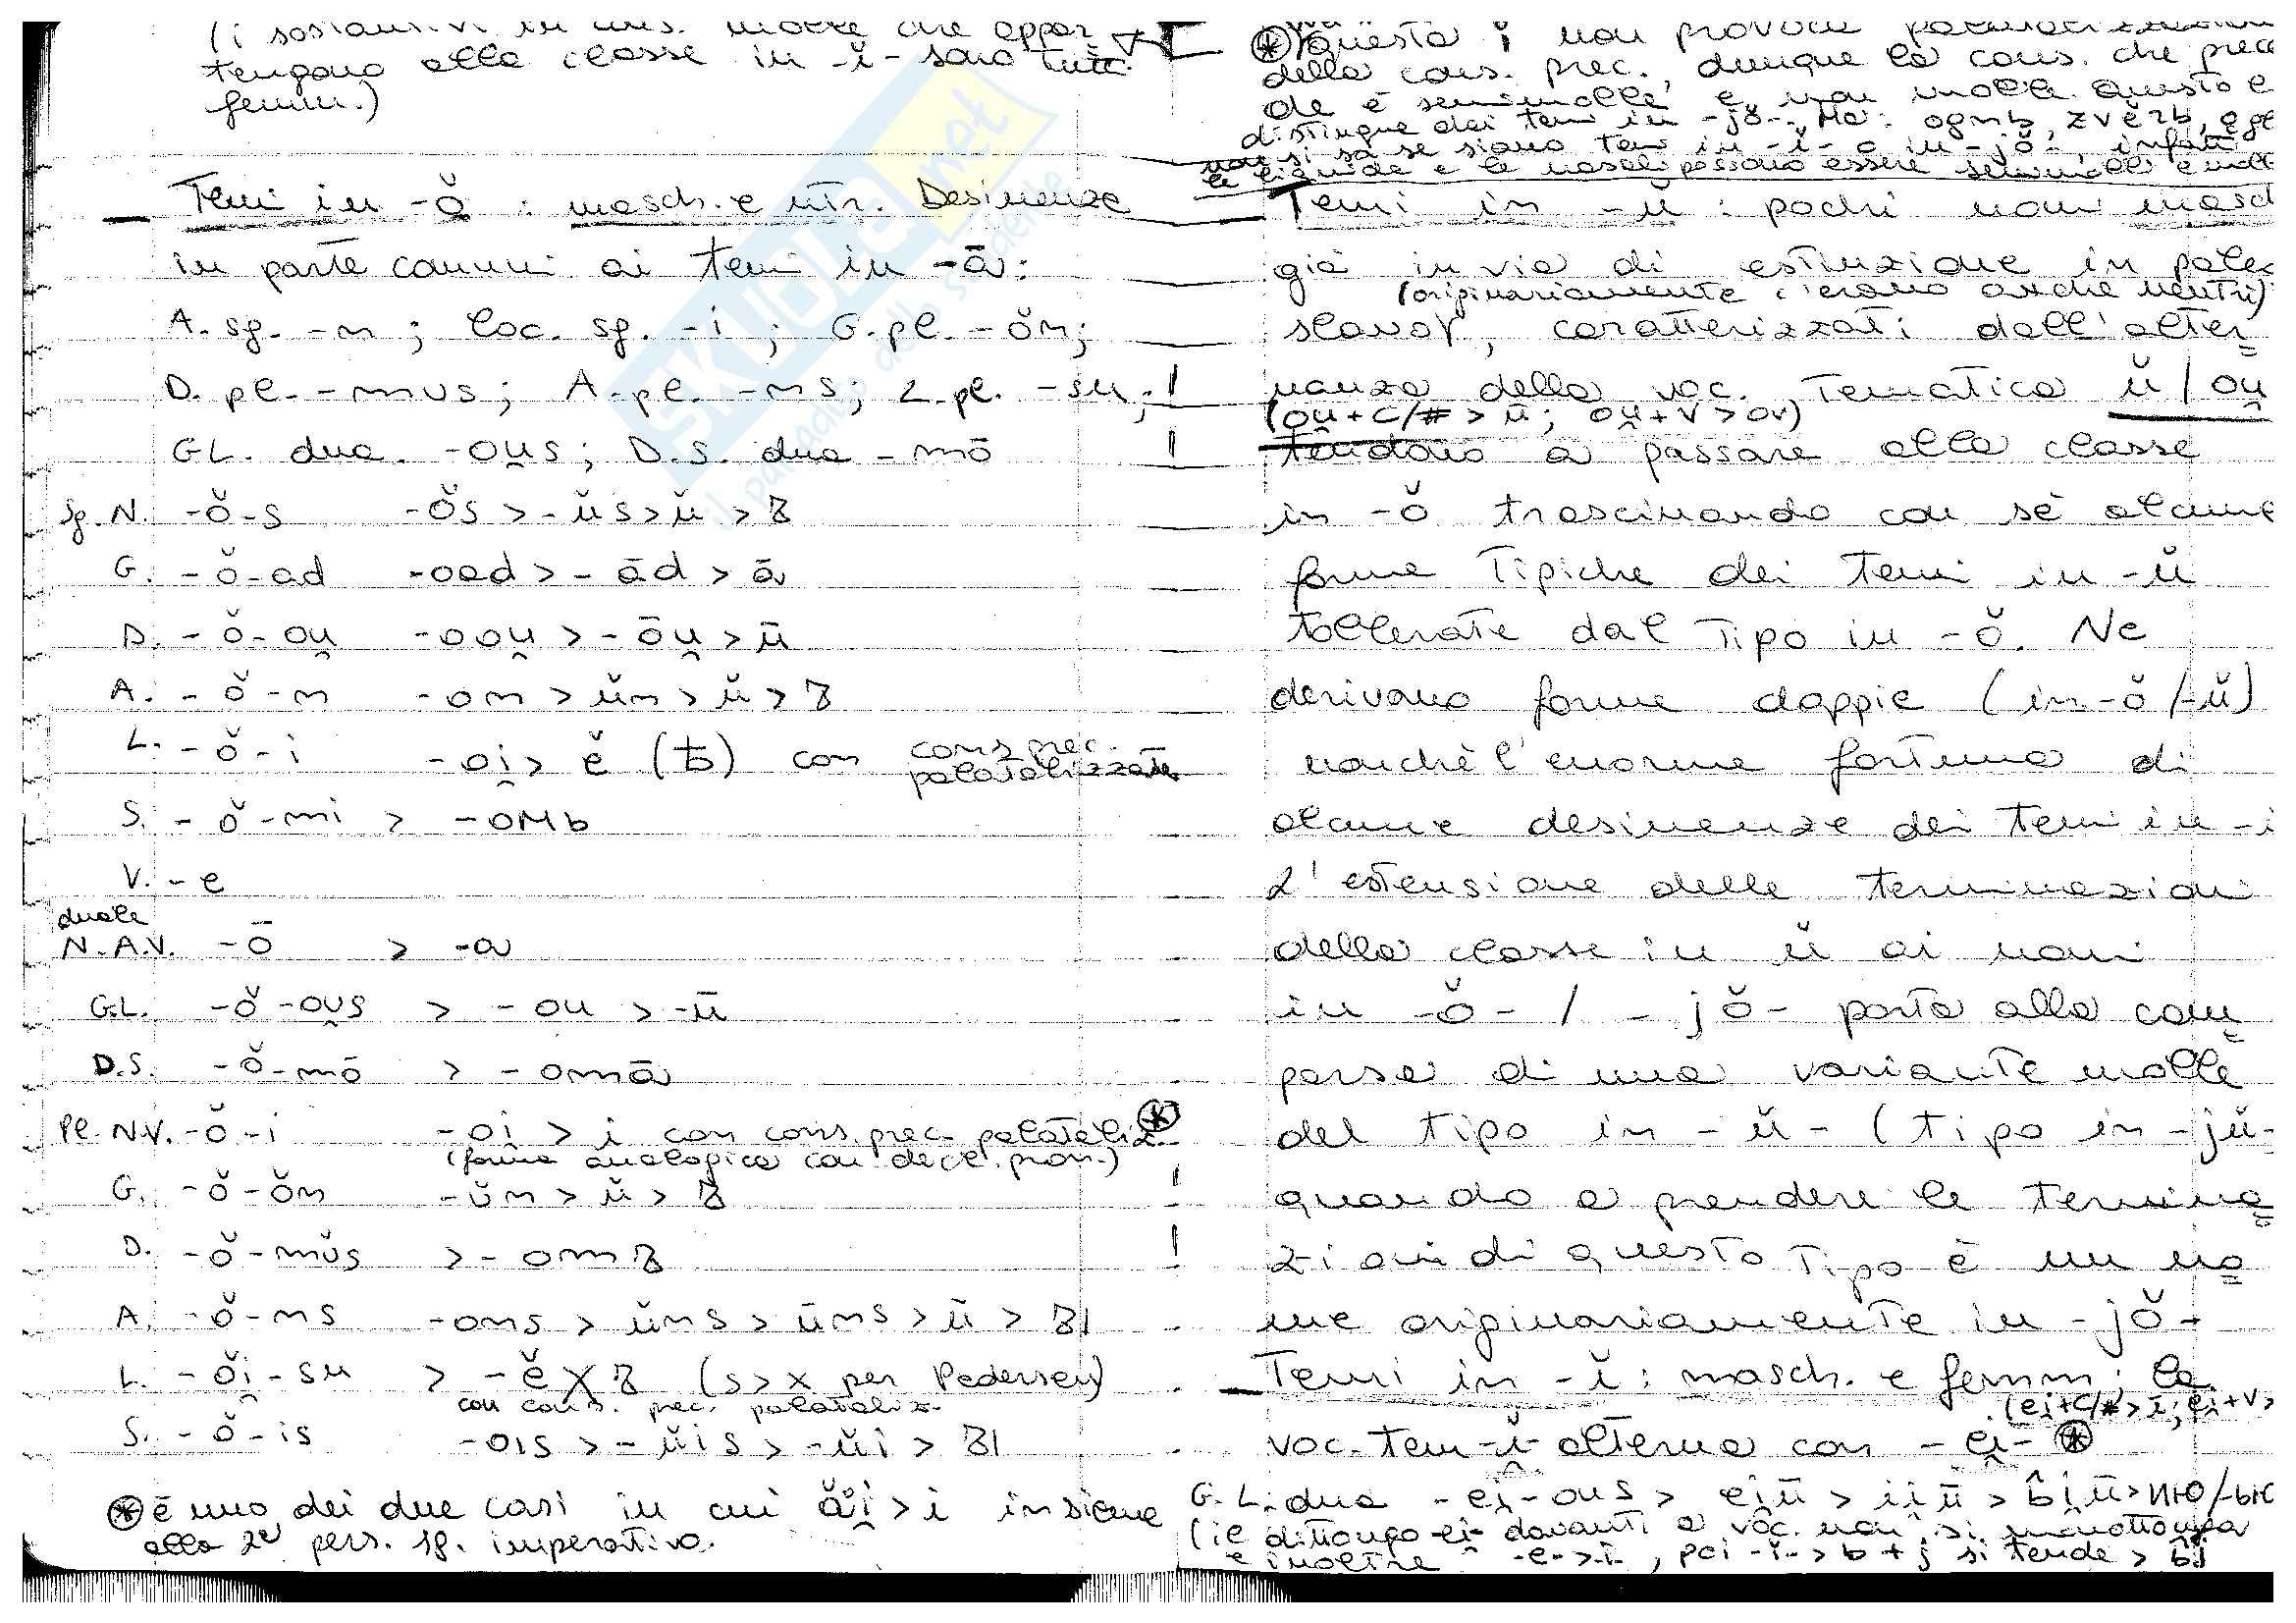 (i sostantivi in cons. molle che appar
tengono alla classe in -ĭ- sono tutti
femm.)
— Temi in -ŏ : masch. e ntr. Desinenze
in parte comuni ai temi in -ā:
A. sg. -m ; loc. sg. -i ; G. pl. -ŏm;
D. pl. -mus; A. pl. -ms; L. pl. -su;
G L. dua. -ou̯s; D.S. dua -mō
sg. N. -ŏ-s -ŏs > -ŭs > ŭ > ъ
G. -ŏ-ad -oad > -ād > ā
D. -ŏ-ou̯ -oou̯ > -ōu̯ > ū
A. -ŏ-m -om > ŭm > ŭ > ъ
L. -ŏ-i -oi̯ > ě (ѣ) con cons. prec. palatalizzata
S. -ŏ-mi > -омь
V. -e
duale
N.A.V. -ō > -a
G.L. -ŏ-ou̯s > -ou > -ū
D.S. -ŏ-mō > -omā
Pl. N.V. -ŏ-i -oi > i con cons. prec. palataliz. ⊛
(forma analogica con decl. pron.)
G. -ŏ-ŏm -ŭm > ŭ > ъ
D. -ŏ-mŭs > -omъ
A. -ŏ-ms -oms > ŭms > ūms > ū > ъı
L. -ŏi̯-su > -ěxъ (s > x per Pedersen)
con cons. prec. palataliz.
S. -ŏ-is -ois > -ŭis > -ŭi > ъı
⊛ è uno dei due casi in cui ăi̯ > i insieme
alla 2ª pers. sg. imperativo.
⊛ questa ĭ non provoca
della cons. prec., dunque la cons. che prece
de è semimolle e non molle questo
distingue dai temi in -jŏ-. Ma: ognь, zvěrь,
non si sa se siano temi in -ĭ- o in -jŏ-, infatti
le liquide e le nasali possono essere semimolli e molli
Temi in -ŭ : pochi nomi masch
già in via di estinzione in paleo
(originariamente c'erano anche neutri)
slavo, caratterizzati dall'alter
nanza della voc. tematica ŭ / ou̯
(ou̯+C/# > ū; ou̯+V > ov)
tendono a passare alla classe
in -ŏ trascinando con sé alcune
forme tipiche dei temi in -ŭ
tollerate dal tipo in -ŏ. Ne
derivano forme doppie (in -ŏ / -ŭ)
nonché l'enorme fortuna di
alcune desinenze dei temi in -
L'estensione delle terminazioni
della classe in ŭ ai nomi
in -ŏ- / -jŏ- porta alla com
parsa di una variante molle
del tipo in -ŭ- (tipo in -jŭ-
quando a prendere le termina
zioni di questo tipo è un no
me originariamente in -jŏ-
— Temi in -ĭ : masch. e femm; la
(ei̯+C/# > ī; ei̯+V >
voc. tem -ĭ- alterna con -ei̯- ⊛
G. L. dua -ei̯-ous > ei̯ū > ii̯ū > ь̂i̯ū > ию/-ью
(ie dittongo -ei̯- davanti a voc. non si monottonga
e inoltre -e- > i-, poi -ĭ- > ь + j si tende > ь̂j